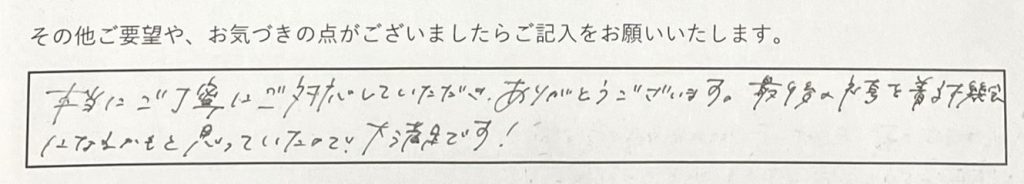 その他ご要望や、お気づきの点がございましたらご記入をお願いいたします。
本当にご丁寧にご対応していただき、ありがとうございます。最後の衣装を着る機会
になるかもと思っていたので、大満足です!